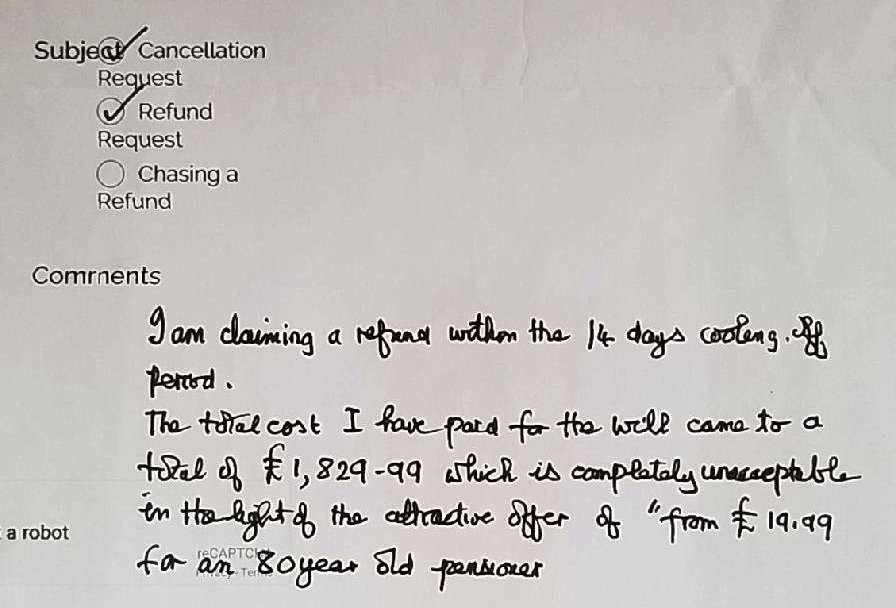 Subject Cancellation
Request
Refund
Request
Chasing a
Refund
Comments
I am claiming a refund within the 14 days cooling. Off
period.
The total cost I have paid for the will came to a
total of £1,829-99 which is completely unacceptable
in the light of the attractive offer of "from £19.99
a robot
reCAPTC
for an 80 year old pensioner